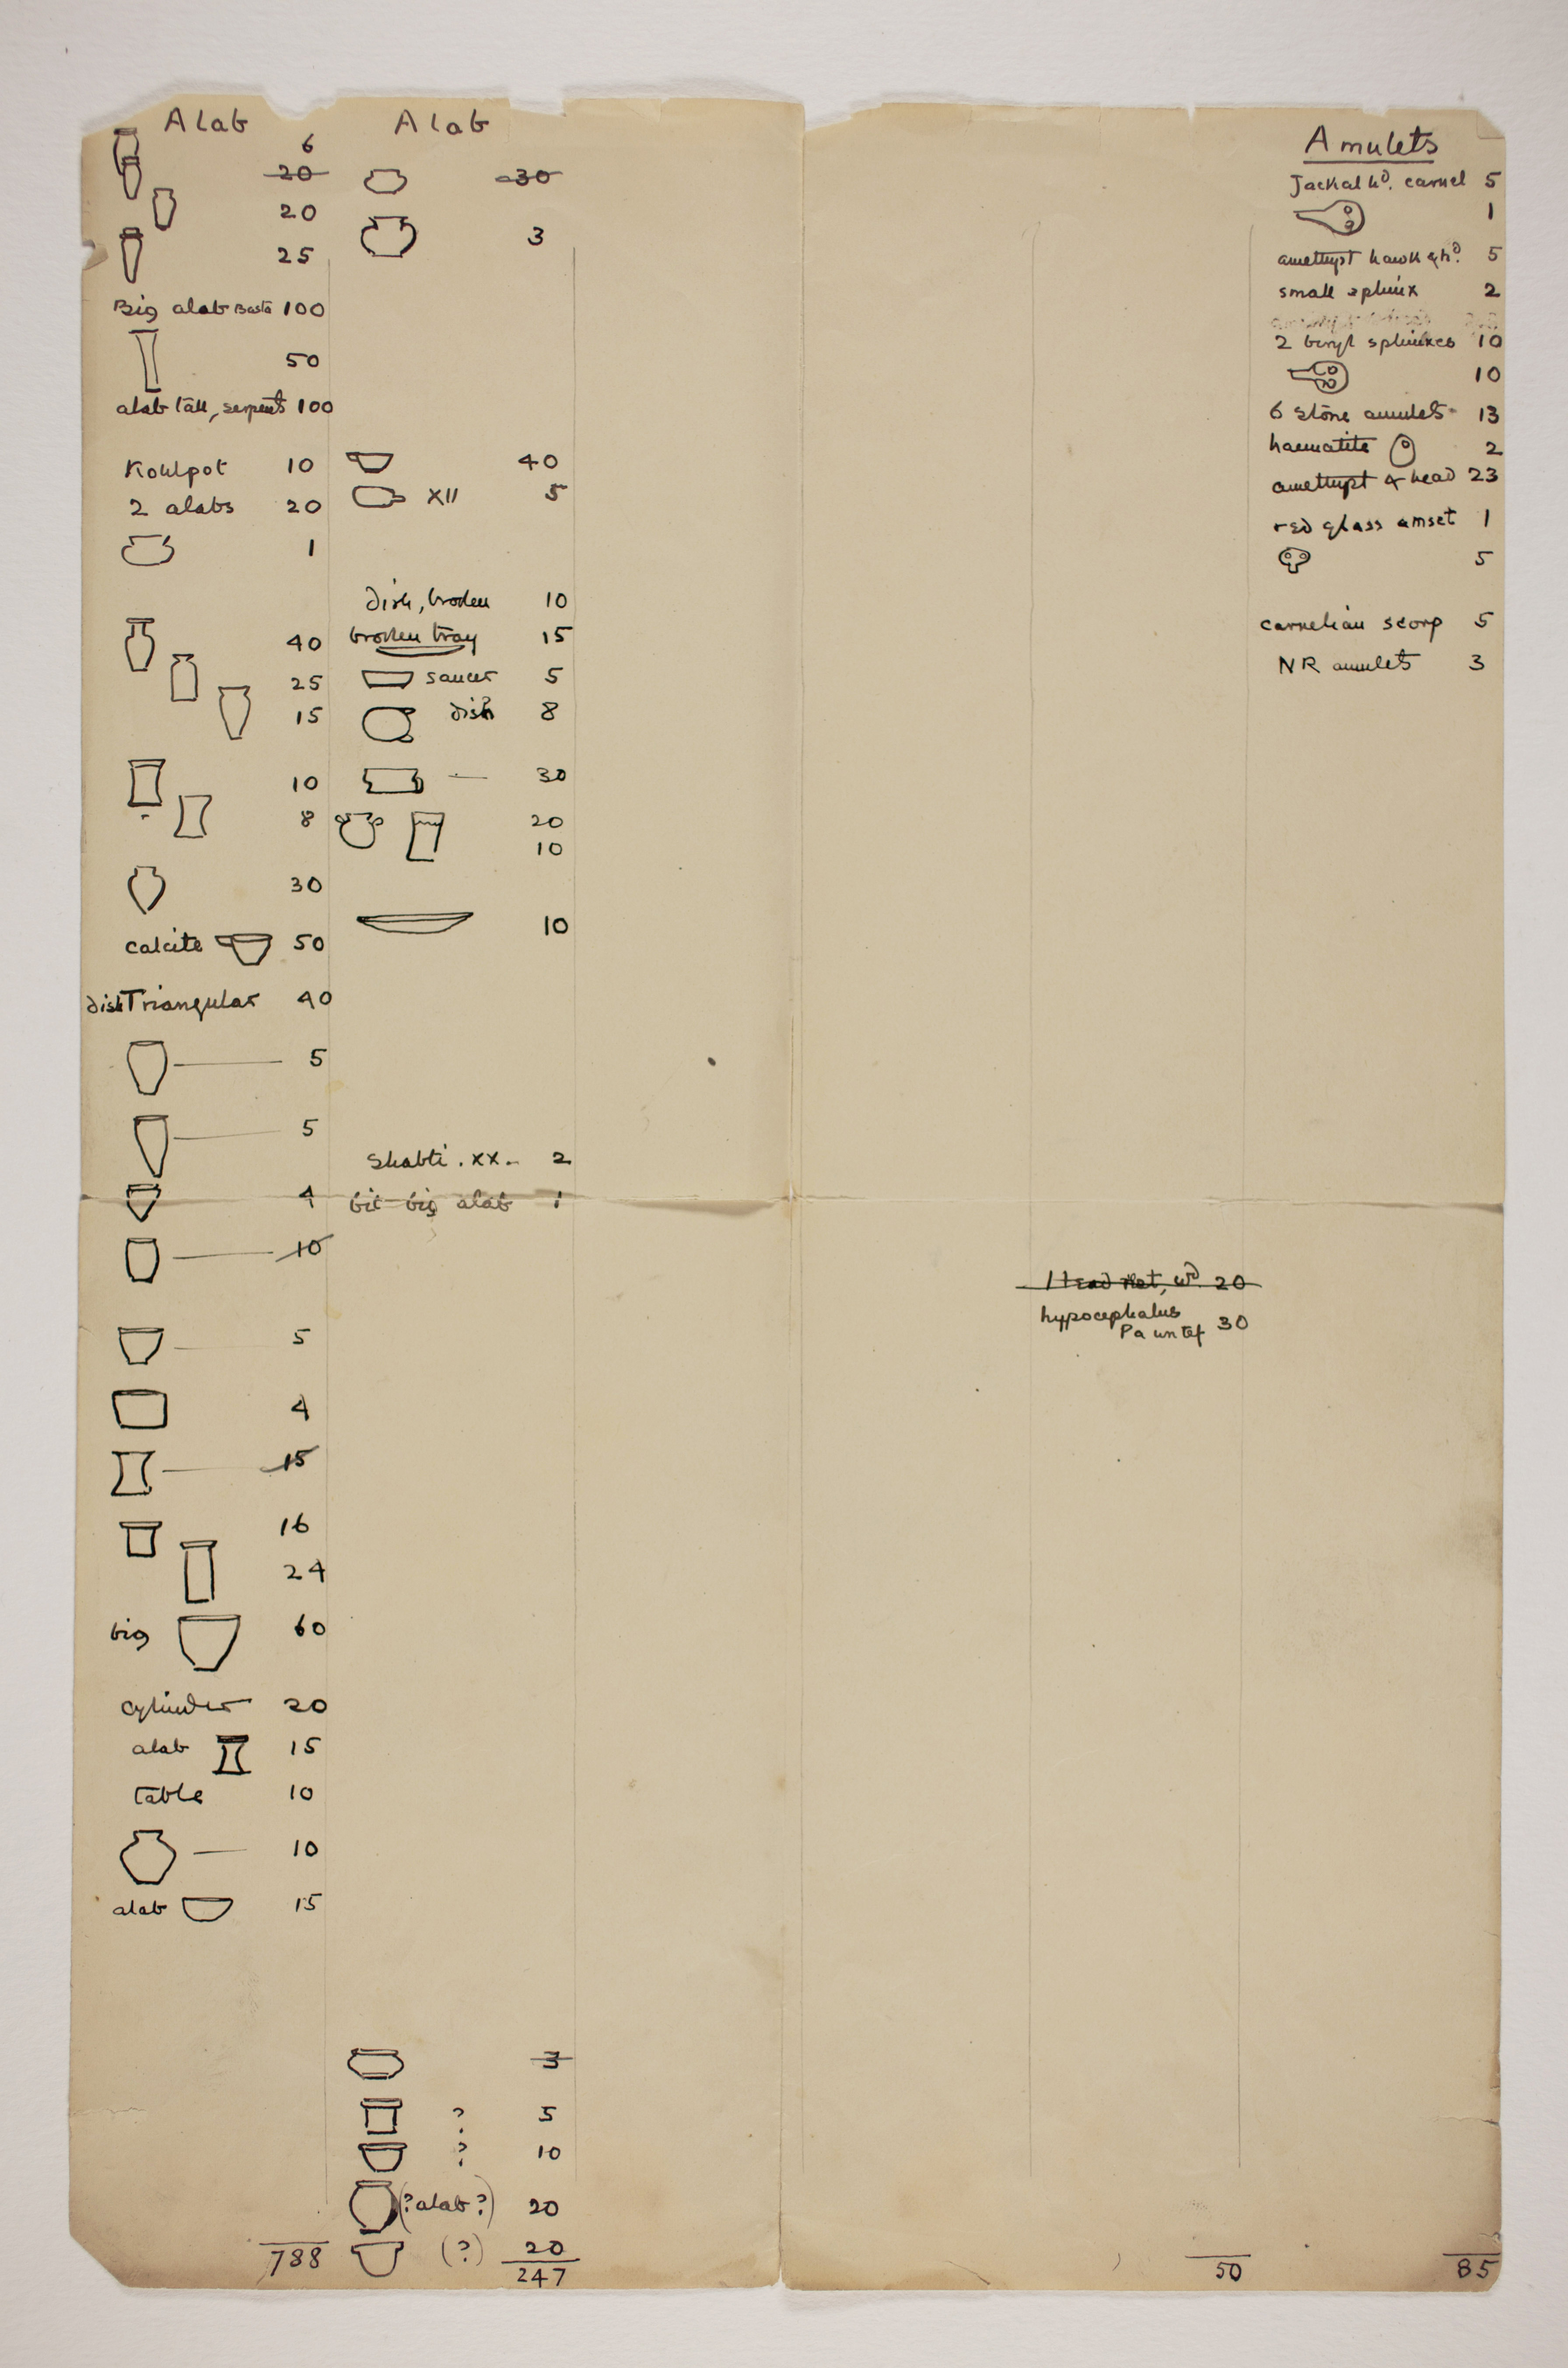 Alab
6
20
20
25
Big alab Basta 100
50
alab tall, serpents 100
Kohlpot 10
2 alabs 20
1
40
25
15
10
8
30
calcite 50
dish Triangular 40
5
5
4
10
5
4
15
16
24
big 60
cylinder 20
alab 15
table 10
10
alab 15
788
Alab
30
3
40
XII 5
dish, broken 10
broken tray 15
saucer 5
dish 8
30
20
10
10
Shabti . XX. 2
bit big alab 1
3
? 5
? 10
(?alab?) 20
(?) 20
247
Head 20
hypocephalus
Pa un tef 30
50
Amulets
Jackal hd. carnel 5
1
amethyst hawk & hd. 5
small sphinx 2
2 beryl sphinxes 10
10
6 stone amulets 13
haematite 2
amethyst & head 23
red glass amset 1
5
carnelian scorp 5
NR amulets 3
85